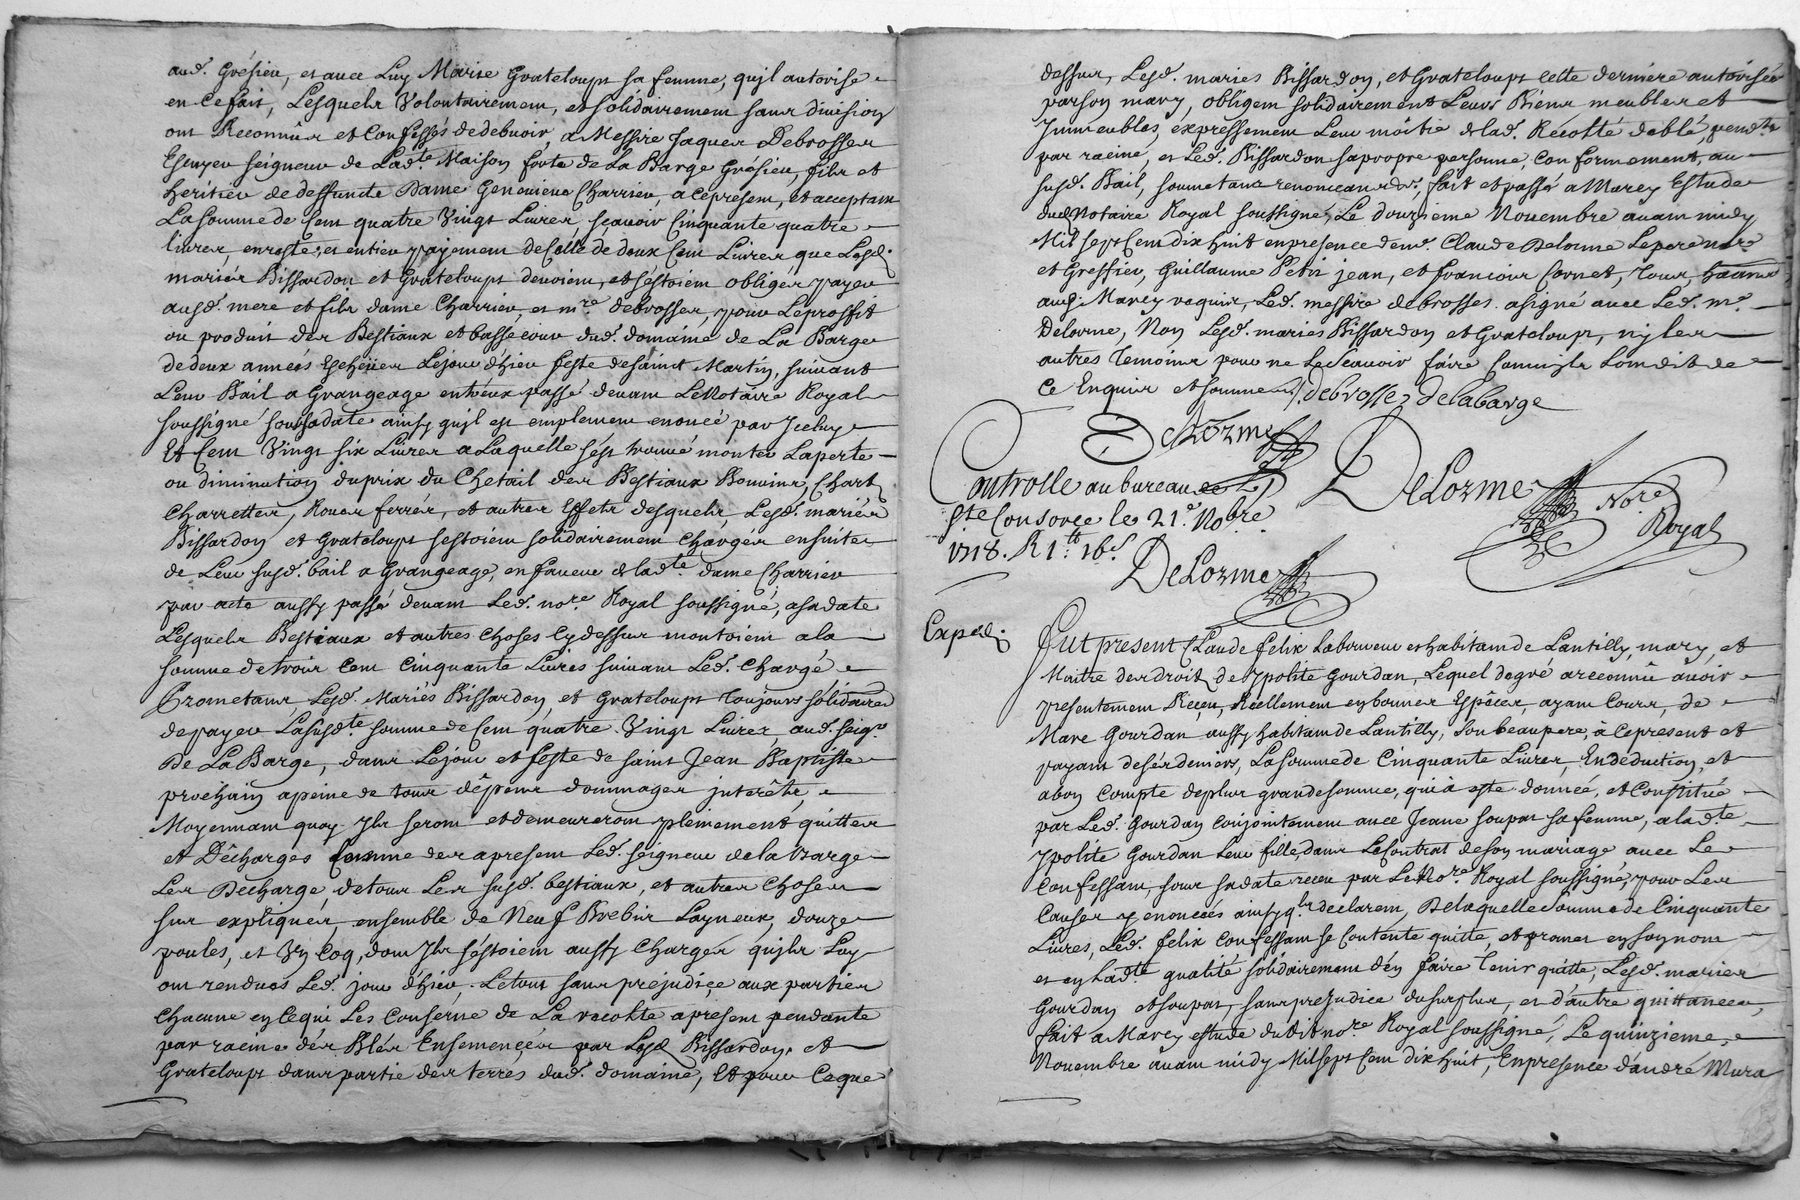 aud. Grésieu, et avec Luy Marie Grateloupt sa femme, quil autorise
en ce fait, Lesquels Volontairement, et solidairement sans division
ont Reconnûs et Confessés de debvoir, a Messire Jaques Debrosses
Escuyer seigneur de Lad.te Maison forte de La Barge Grésieu, fils et
heritier de deffunte Dame Genevieve Charrier, a ce present, et acceptant
La somme de Cent quatre Vingt Livres, scavoir Cinquante quatre
livres, en reste, et entier payement de Celle de deux Cent Livres que Lesd.
mariés Bissardon et Grateloupt devoient, et s'estoient obligés payer
ausd. mere et fils dame Charrier, et mr.e debrosses, pour Le proffit
ou produit des Bestiaux et basse cour dud. domaine de La Barge
de deux années Escheües Le jour d'hier feste de saint Martin, suivant
Leur Bail a Grangeage entreux passé devant Le Notaire Royal
soussigné sous sa date ainsy quil est emplement enoncé par Jceluy
Et Cent Vingt six Livres a Laquelle s'est trouvé monter La perte
ou diminution du prix du Chetail des Bestiaux Bouvins, Chart
Charrettes, Roues ferrés, et autres Effets desquels Lesd. mariés
Bissardon et Grateloupt s'estoient solidairement chargés ensuite
de Leur susd. bail a Grangeage, en faveur de lad.te dame Charrier
par acte aussy passé devant Led. no.re Royal soussigné, a sa date
Lesquels Bestiaux et autres choses cy dessus montoient a la
somme de trois Cent Cinquante Livres suivant Led. Chargé
Prometans Lesd. Mariés Bissardon, et Grateloupt toujours solidaires
de payer La susd.te somme de Cent quatre Vingt Livres, aud. seig.r
De La Barge, dans Le jour et feste de saint Jean Baptiste
prochain a peine de tous dêpens dommages jnterêts,
Moyennant quoy Jls seront et demeureront plenement quittes
et Dêchargés Comme des apresent Led. seigneur de la Barge
Les Decharge, de tous Les susd. bestiaux, et autres choses
sus expliqués, ensemble de Neuf Brebis Layneux, douze
poules, et Un Coq, dont Jls s'éstoient aussy Chargés quils Luy
ont rendues Led. jour d'hier, Le tout sans prejudice aux parties
Chacune en Ce qui Les Conserne de La recolte apresent pendante
par racine dés Blés Ensemencés par Lesd. Bissardon, et
Grateloupt dans partie des terres dud. domaine, Et pour Ce que
dessus, Lesd. mariés Bissardon, et Grateloupt Cette derniere autorisée
par son mary, obligent solidairement Leurs Biens meubles et
Jmmeubles, expressement Leur môitié de lad. Recolté de blé, pend.te
par racine, et Led. Bissardon sa propre personne, Conformement, au
susd. Bail, soumetans renonceans &c., fait et passé a Marcy Estude
dud. Notaire Royal soussigné, Le douzieme Novembre avant midy
Mil sept Cent dix huit en presence de mr. Claude Delorme Le pere no.re
et Greffier, Guillaume Petit jean, et francois Cornet, tous,
aud. Marcy requis, Led. messire debrosses a signé avec Led. mr.
Delorme, Non Lesd. mariés Bissardon et Grateloupt, ny les
autres temoins pour ne Le Scavoir faire Comm'ils L'ont dit de
Ce Enquis et sommés. J. debrosses delabarge
Delorme
Controlle au bureau de
Ste Consorce le 21.e No.bre
1718. R 1.tt 16.s
DeLorme No.re
Royal
DeLorme
Exped.
Fut present Claude felix Laboureur et habitant de Lantilly, mary, et
Maitre des droit de ypolite Gourdan, Lequel de gré a reconnû avoir
presentement Reçeu, Reellement en bonnes Espêces, ayant Cours, de
Marc Gourdan aussy habitant de Lantilly, Son beaupere, à Ce present et
payant de sés deniers, La somme de Cinquante Livres, En deduction, et
a bon Compte de plus grande somme, qui à esté donnée, et Constitué
par Led. Gourdan Conjointement avec Jeane soupat sa femme, a lad.te
ypolite Gourdan Leur fille, dans Le Contrat de son mariage avec Le
Confessant, sous sa date receu par Le No.re Royal soussigné, pour Les
Causes y enoncées ainsy q.ls declarent, De laquelle Somme de Cinquante
Livres, Led. felix Confessant se Contente quitte, et promet en son nom
et en Lad.te qualité solidairement d'en faire tenir quitte, Lesd. mariés
Gourdan et soupat, sans prejudice du surplus, et d'autre quittances,
fait a Marcy estude dudit no.re Royal soussigné, Le quinzieme
Novembre avant midy Mil sept Cent dix huit, En presence d'andré Mura